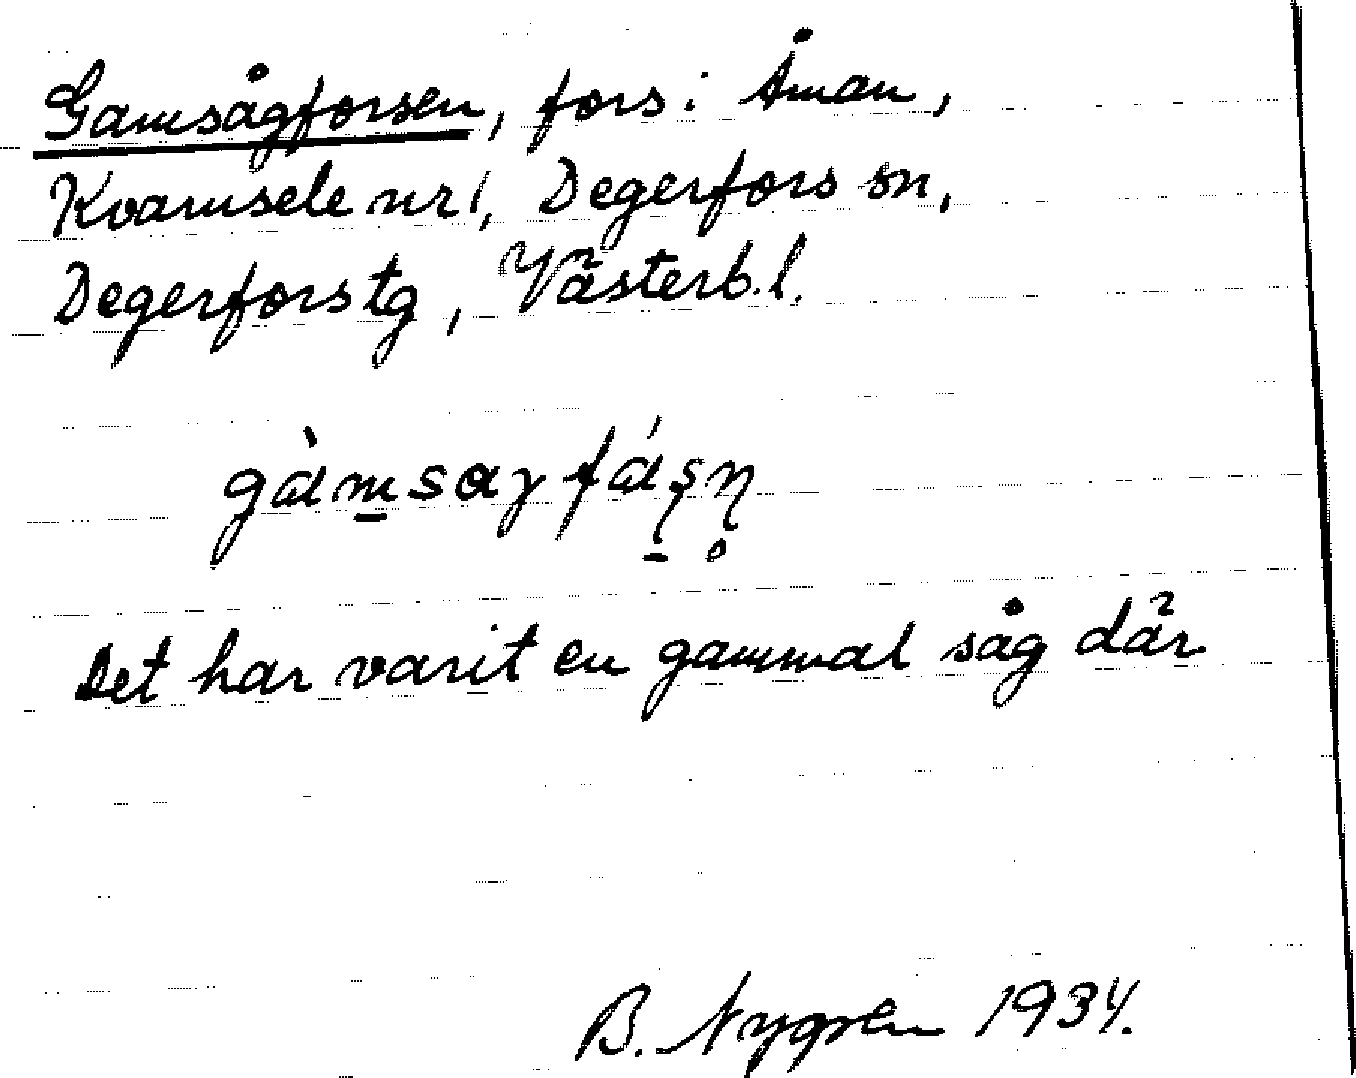 Gamsågforsen, fors i Åman,
Kvarnsele nr 1, Degerfors sn,
Degerfors tg, Västerb. l.
gàm̲saɣfáṣ̲ṇ̥
Det har varit en gammal såg där
B. Nygren 1934.